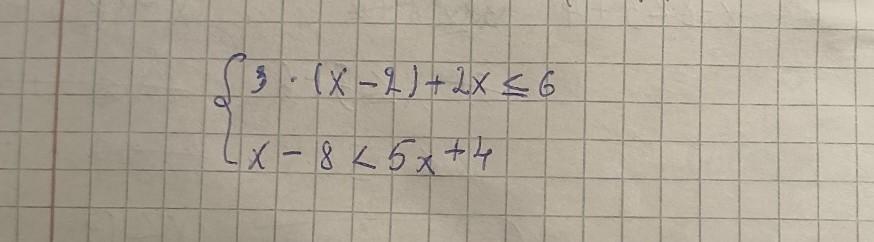 { 3 · (x - 2) + 2x ≤ 6
x - 8 < 5x + 4